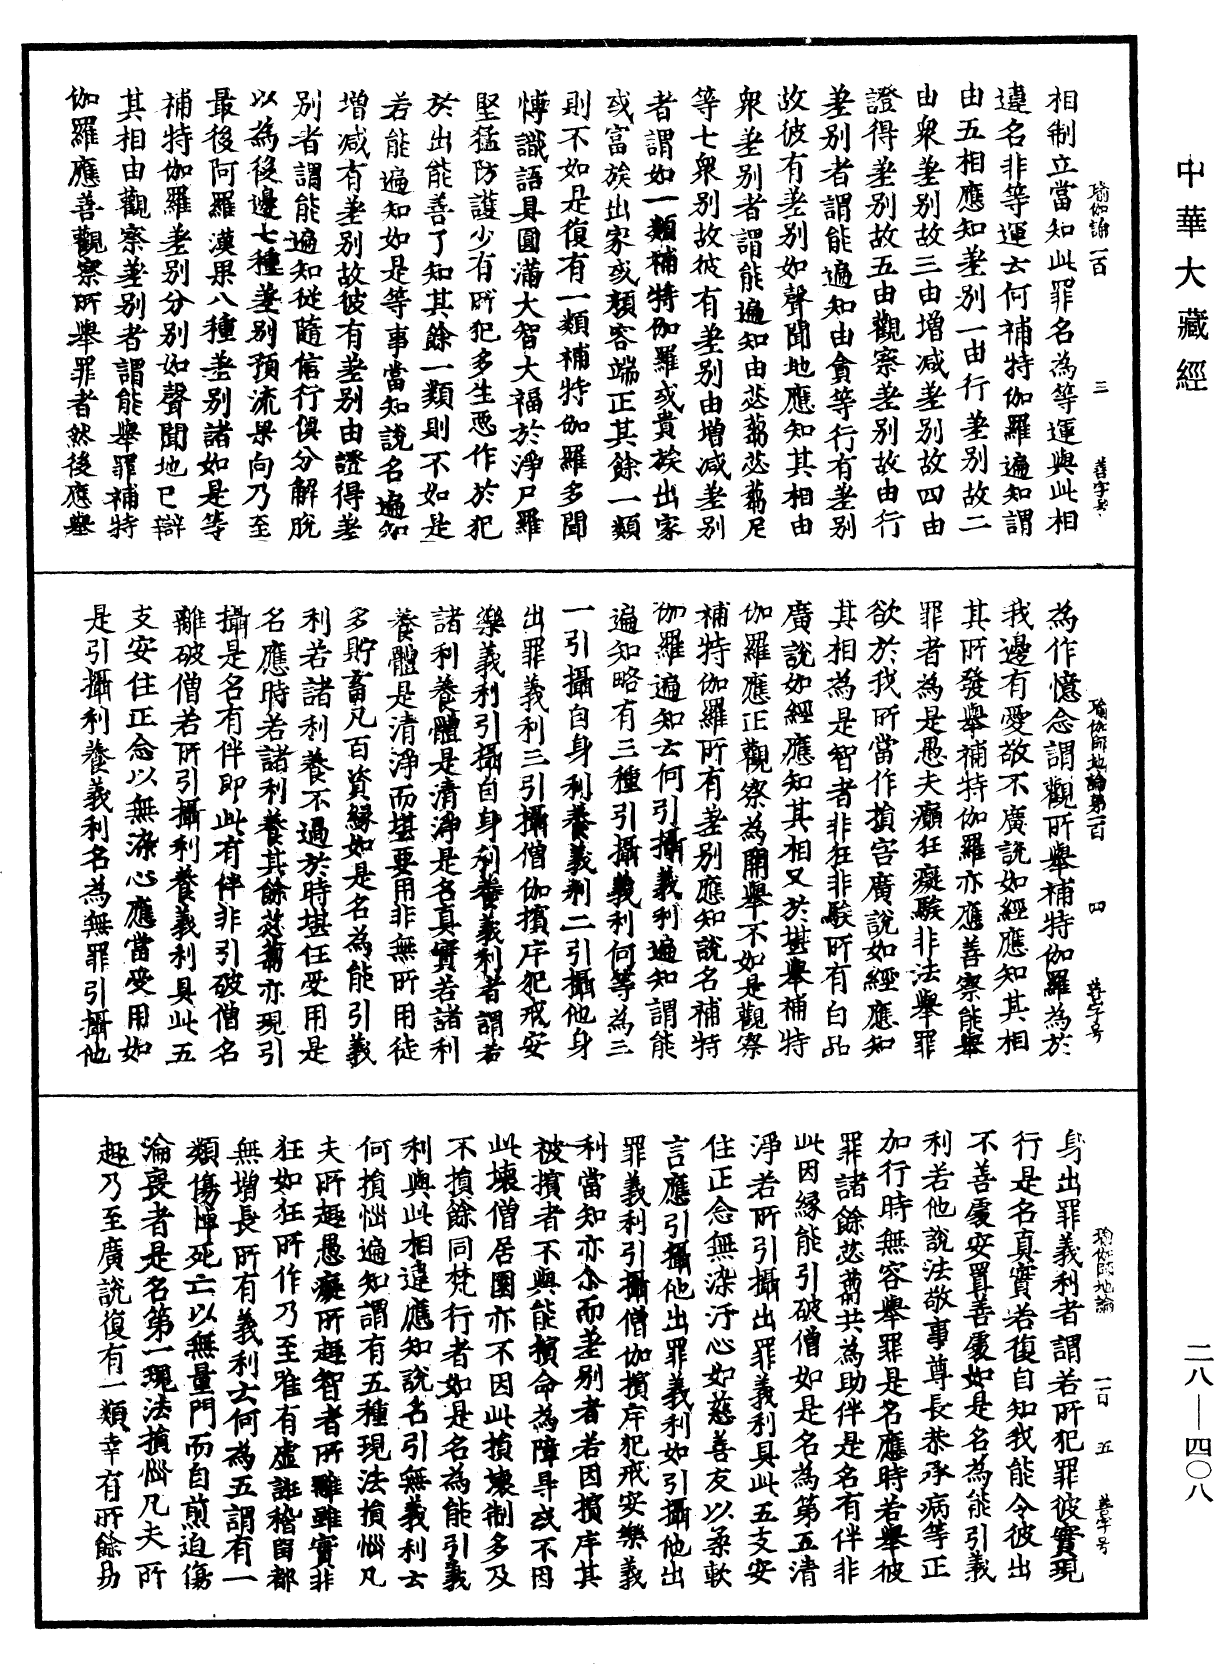 中華大藏經
瑜伽論一百
三
善字号
相制立當知此罪名為等運與此相
違名非等運云何補特伽羅遍知謂
由五相應知差別一由行差別故二
由衆差別故三由增減差別故四由
證得差別故五由觀察差別故由行
差別者謂能遍知由貪等行有差別
故彼有差別如聲聞地應知其相由
衆差別者謂能遍知由苾芻苾芻尼
等七衆別故彼有差別由增減差別
者謂如一類補特伽羅或貴族出家
或富族出家或顏容端正其餘一類
則不如是復有一類補特伽羅多聞
博識語具圓滿大智大福於淨尸羅
堅猛防護少有所犯多生惡作於犯
於出能善了知其餘一類則不如是
若能遍知如是等事當知說名遍知
增減有差別故彼有差別由證得差
別者謂能遍知從隨信行俱分解脫
以為後邊七種差別預流果向乃至
最後阿羅漢果八種差別諸如是等
補特伽羅差別分別如聲聞地已辯
其相由觀察差別者謂能舉罪補特
伽羅應善觀察所舉罪者然後應舉
瑜伽師地論第一百
四
善字号
為作憶念謂觀所舉補特伽羅為於
我邊有愛敬不廣說如經應知其相
其所發舉補特伽羅亦應善察能舉
罪者為是愚夫癲狂癡騃非法舉罪
欲於我所當作損害廣說如經應知
其相為是智者非狂非騃所有白品
廣說如經應知其相又於堪舉補特
伽羅應正觀察為開舉不如是觀察
補特伽羅所有差別應知說名補特
伽羅遍知云何引攝義利遍知謂能
遍知略有三種引攝義利何等為三
一引攝自身利養義利二引攝他身
出罪義利三引攝僧伽擯斥犯戒安
樂義利引攝自身利養義利者謂若
諸利養體是清淨是名真實若諸利
養體是清淨而堪要用非無所用徒
多貯畜凡百資緣如是名為能引義
利若諸利養不過於時堪任受用是
名應時若諸利養其餘苾芻亦現引
攝是名有伴即此有伴非引破僧名
離破僧若所引攝利養義利具此五
支安住正念以無染心應當受用如
是引攝利養義利名為無罪引攝他
瑜伽師地論
一百
五
善字号
身出罪義利者謂若所犯罪彼實現
行是名真實若復自知我能令彼出
不善處安置善處如是名為能引義
利若他說法敬事尊長恭承病等正
加行時無容舉罪是名應時若舉彼
罪諸餘苾芻共為助伴是名有伴非
此因緣能引破僧如是名為第五清
淨若所引攝出罪義利具此五支安
住正念無染汙心如慈善友以柔軟
言應引攝他出罪義利如引攝他出
罪義利引攝僧伽擯斥犯戒安樂義
利當知亦尒而差別者若因擯斥其
被擯者不與能擯命為障㝵或不因
此壞僧居園亦不因此損壞制多及
不損餘同梵行者如是名為能引義
利與此相違應知說名引無義利云
何損惱遍知謂有五種現法損惱凡
夫所趣愚癡所趣智者所離雖實非
狂如狂所作乃至唯有虛誑稽留都
無增長所有義利云何為五謂有一
類傷悼死亡以無量門而自煎迫傷
淪喪者是名第一現法損惱凡夫所
趣乃至廣說復有一類幸有所餘易
二八—四〇八